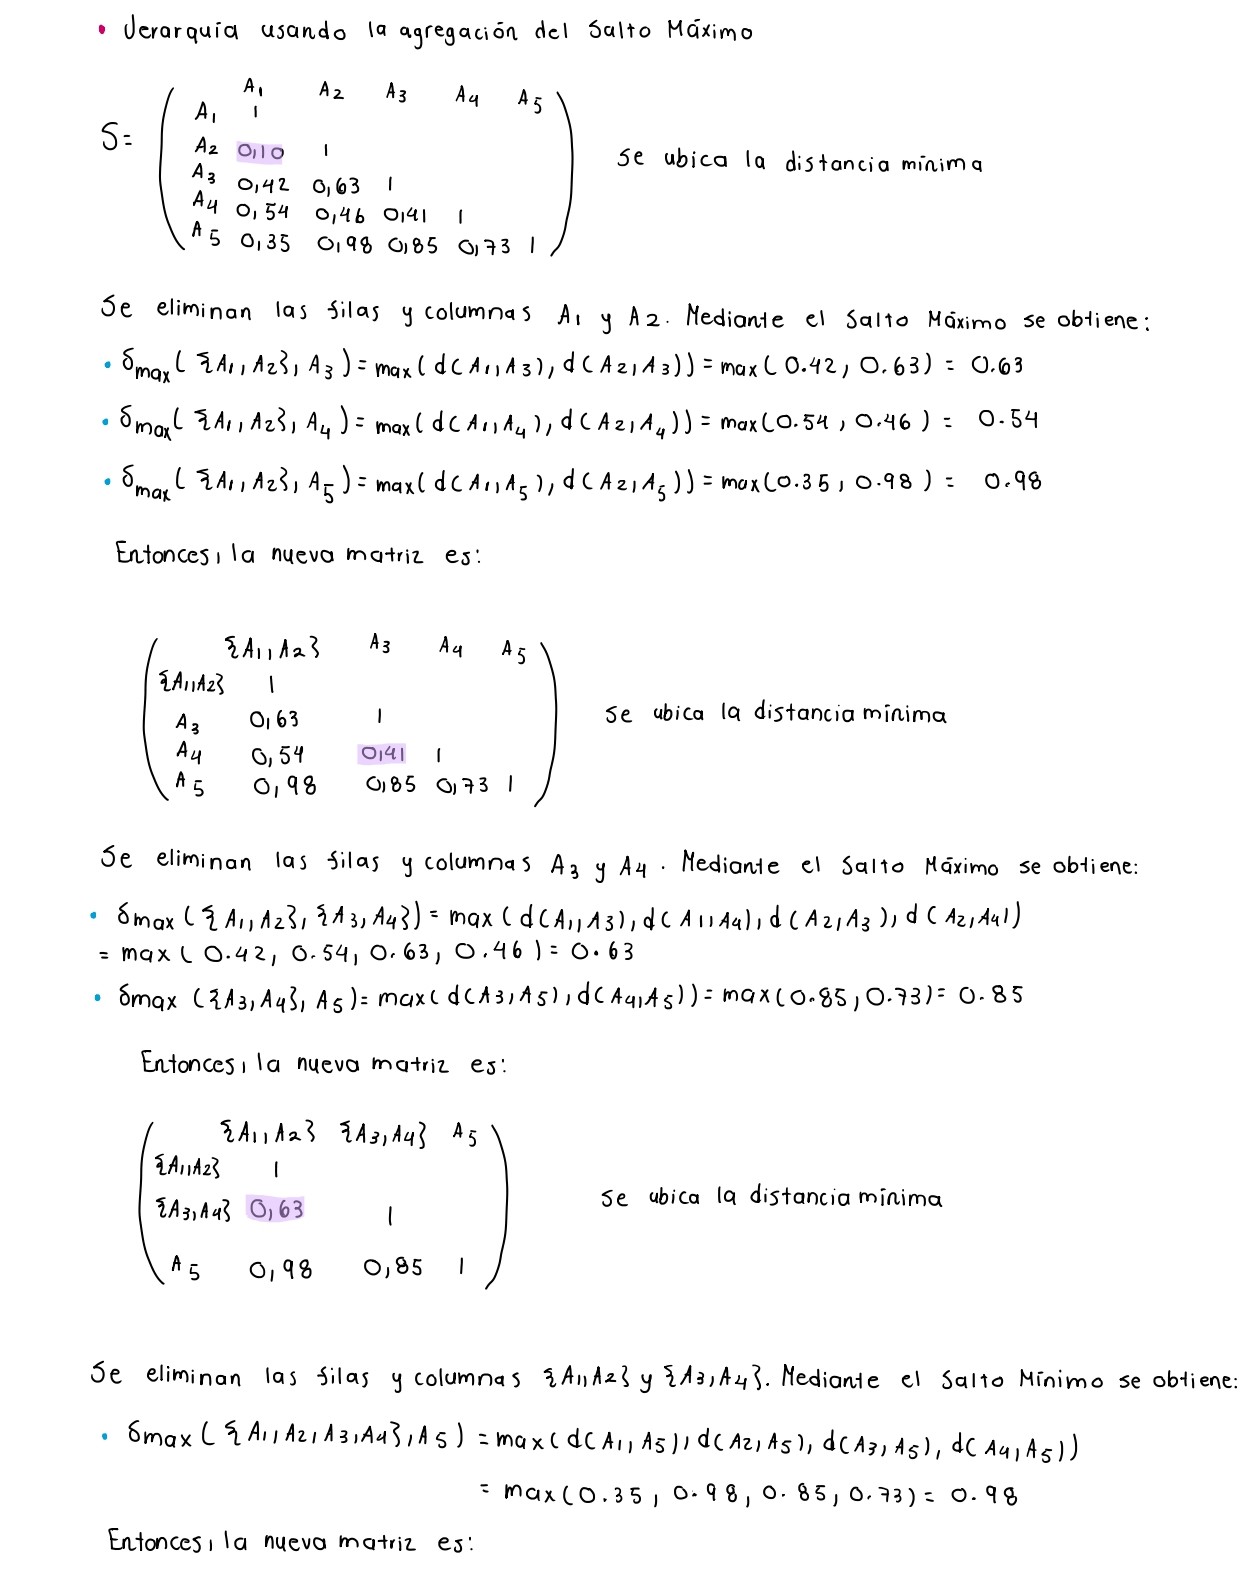 • Jerarquía usando la agregación del Salto Máximo
A1 A2 A3 A4 A5
A1 1
S=
A2 0,10 1
se ubica la distancia mínima
A3 0,42 0,63 1
A4 0,54 0,46 0,41 1
A5 0,35 0,98 0,85 0,73 1
Se eliminan las filas y columnas A1 y A2. Mediante el Salto Máximo se obtiene:
• δmax({A1,A2}, A3)=max(d(A1,A3),d(A2,A3))=max(0.42, 0.63) = 0.63
• δmax({A1,A2}, A4)=max(d(A1,A4),d(A2,A4))=max(0.54, 0.46) = 0.54
• δmax({A1,A2}, A5)=max(d(A1,A5),d(A2,A5))=max(0.35, 0.98) = 0.98
Entonces, la nueva matriz es:
{A1,A2} A3 A4 A5
{A1,A2} 1
A3 0,63 1
se ubica la distancia mínima
A4 0,54 0,41 1
A5 0,98 0,85 0,73 1
Se eliminan las filas y columnas A3 y A4. Mediante el Salto Máximo se obtiene:
• δmax({A1,A2},{A3,A4})=max(d(A1,A3),d(A1,A4),d(A2,A3),d(A2,A4))
= max(0.42, 0.54, 0.63, 0.46)= 0.63
• δmax ({A3,A4}, A5)=max(d(A3,A5),d(A4,A5))=max(0.85,0.73)= 0.85
Entonces, la nueva matriz es:
{A1,A2} {A3,A4} A5
{A1,A2} 1
{A3,A4} 0,63 1
se ubica la distancia mínima
A5 0,98 0,85 1
Se eliminan las filas y columnas {A1,A2} y {A3,A4}. Mediante el Salto Mínimo se obtiene:
• δmax({A1,A2,A3,A4},A5) =max(d(A1,A5),d(A2,A5),d(A3,A5),d(A4,A5))
= max(0.35, 0.98, 0.85, 0.73)= 0.98
Entonces, la nueva matriz es: